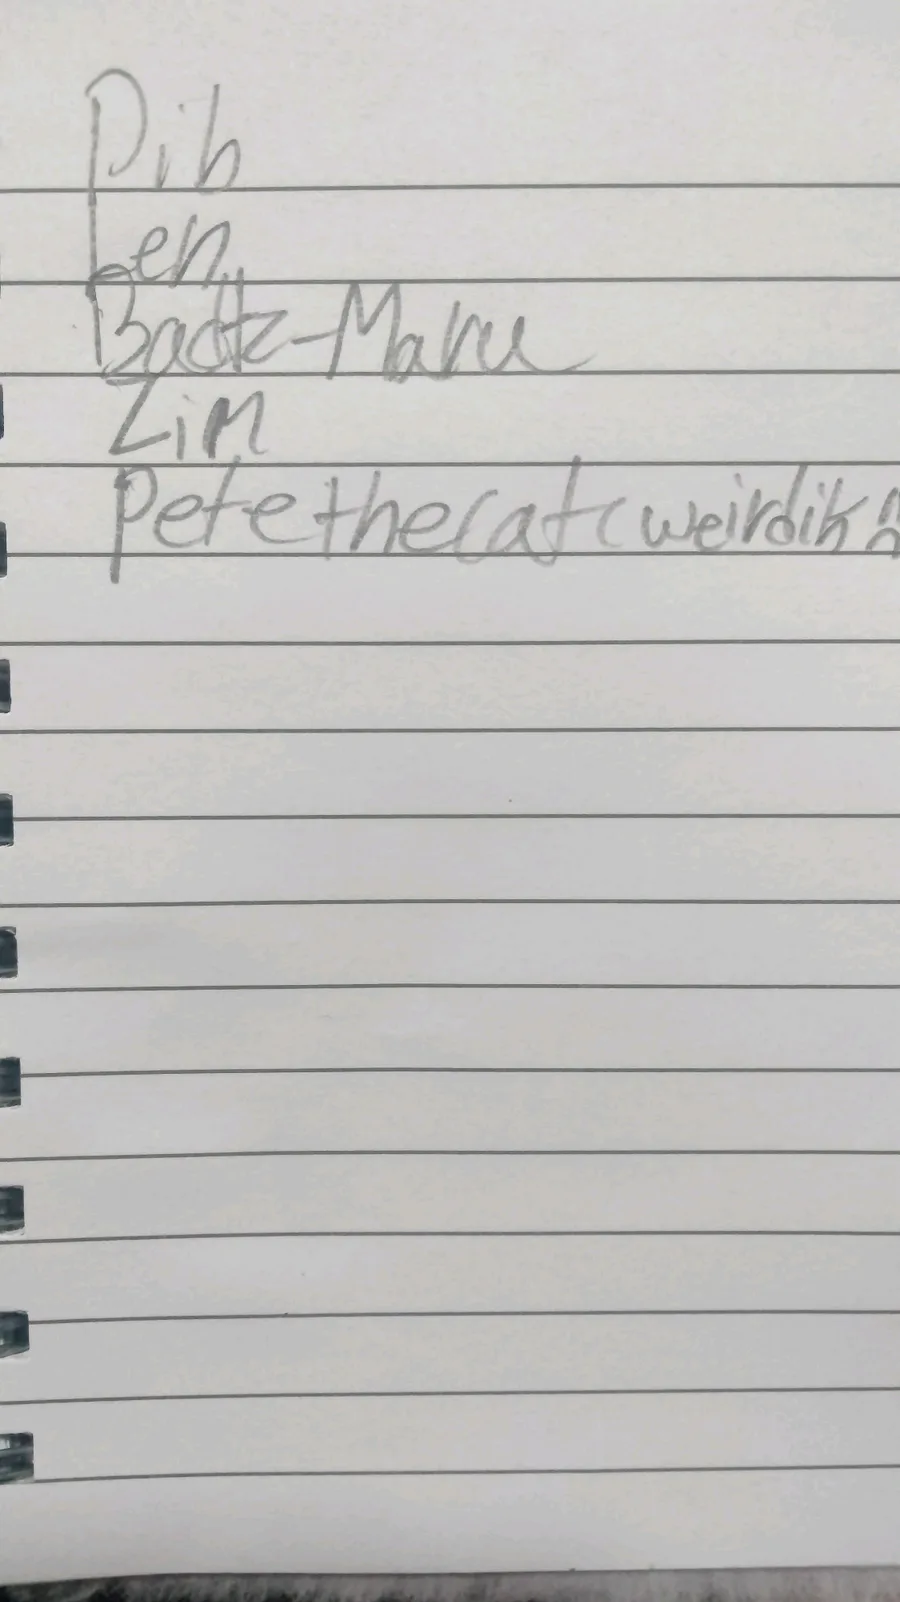 Dib
Len
Badtz-Maru
Zim
Pete the cat (weird ik